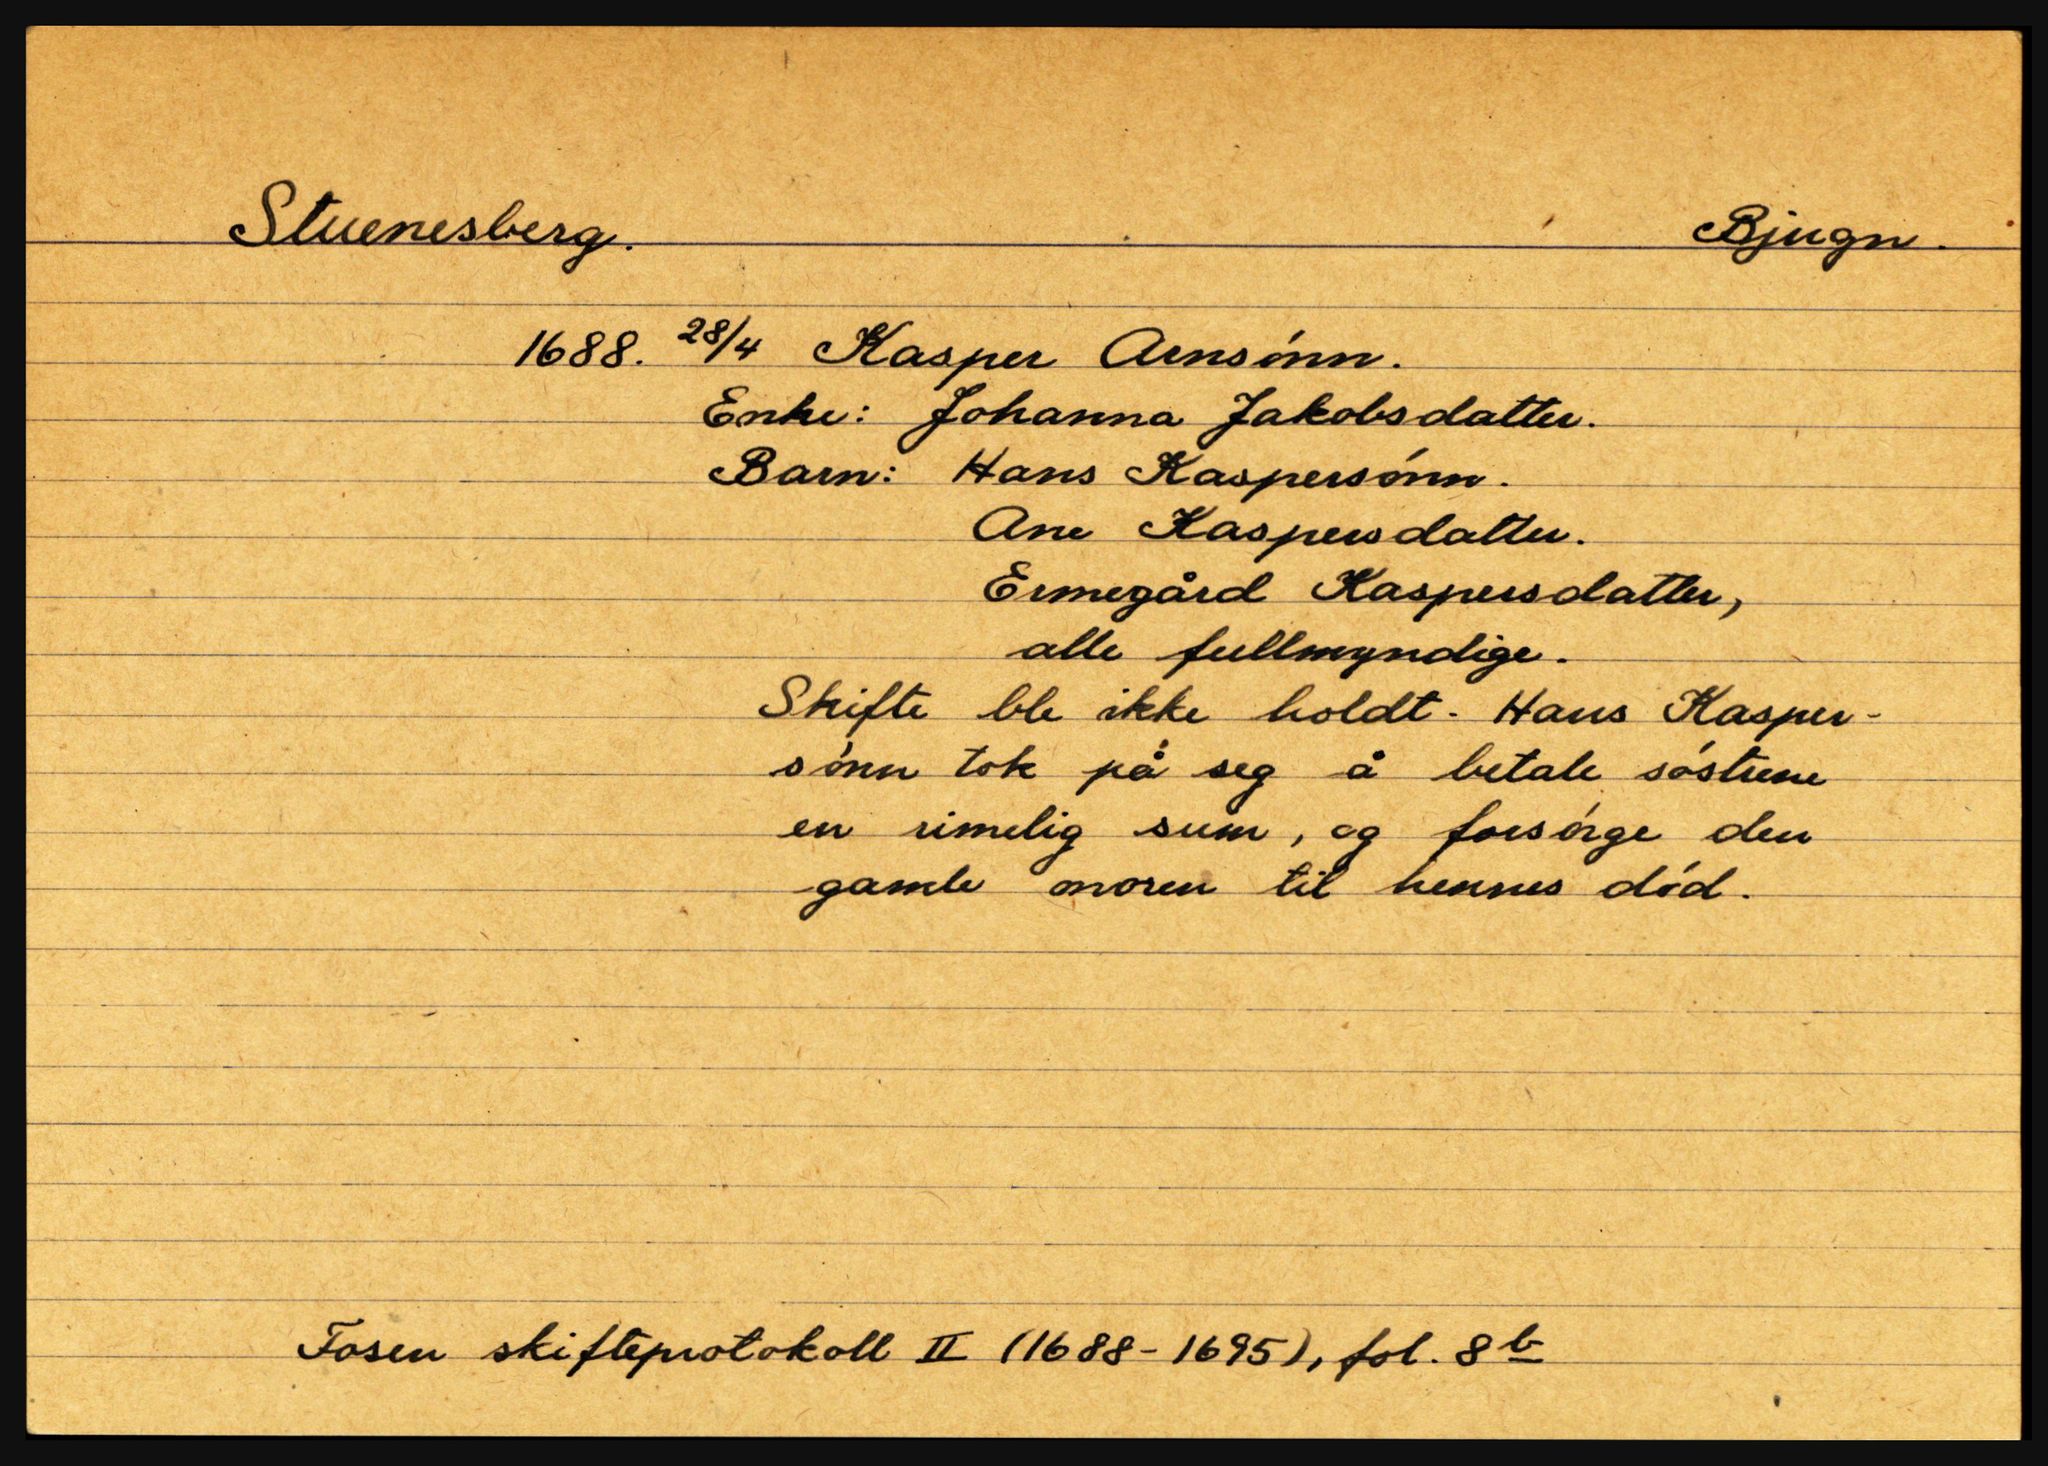 Stuenesberg. Bjugn.
1688. 28/4 Kasper Arnsónn.
Enke: Johanna Jakobsdatter.
Barn: Hans Kaspersónn.
Ane Kaspersdatter.
Ermegård Kaspersdatter,
alle fullmyndige.
Skifte ble ikke holdt. Hans Kasper-
sónn tok på seg å betale sóstrene
en rimelig sum, og forsórge den
gamle moren til hennes dód.
Fosen skifteprotokoll II (1688-1695), fol. 8b